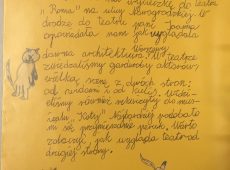 "Roma" na ulicy Nowogrodzkiej. W
drodze do teatru pani Joanna
opowiadała nam jak wyglądała
dawna architektura Warszawy.
W teatrze
zwiedzaliśmy garderoby aktorów,
wielką scenę z dwóch stron:
od widowni i od kulis. Widzie-
liśmy również rekwizyty do mus-
icalu "Koty". Najbardziej podobało
mi się przymierzanie peruk. Warto
zobaczyć, jak wygląda teatr od
drugiej strony.